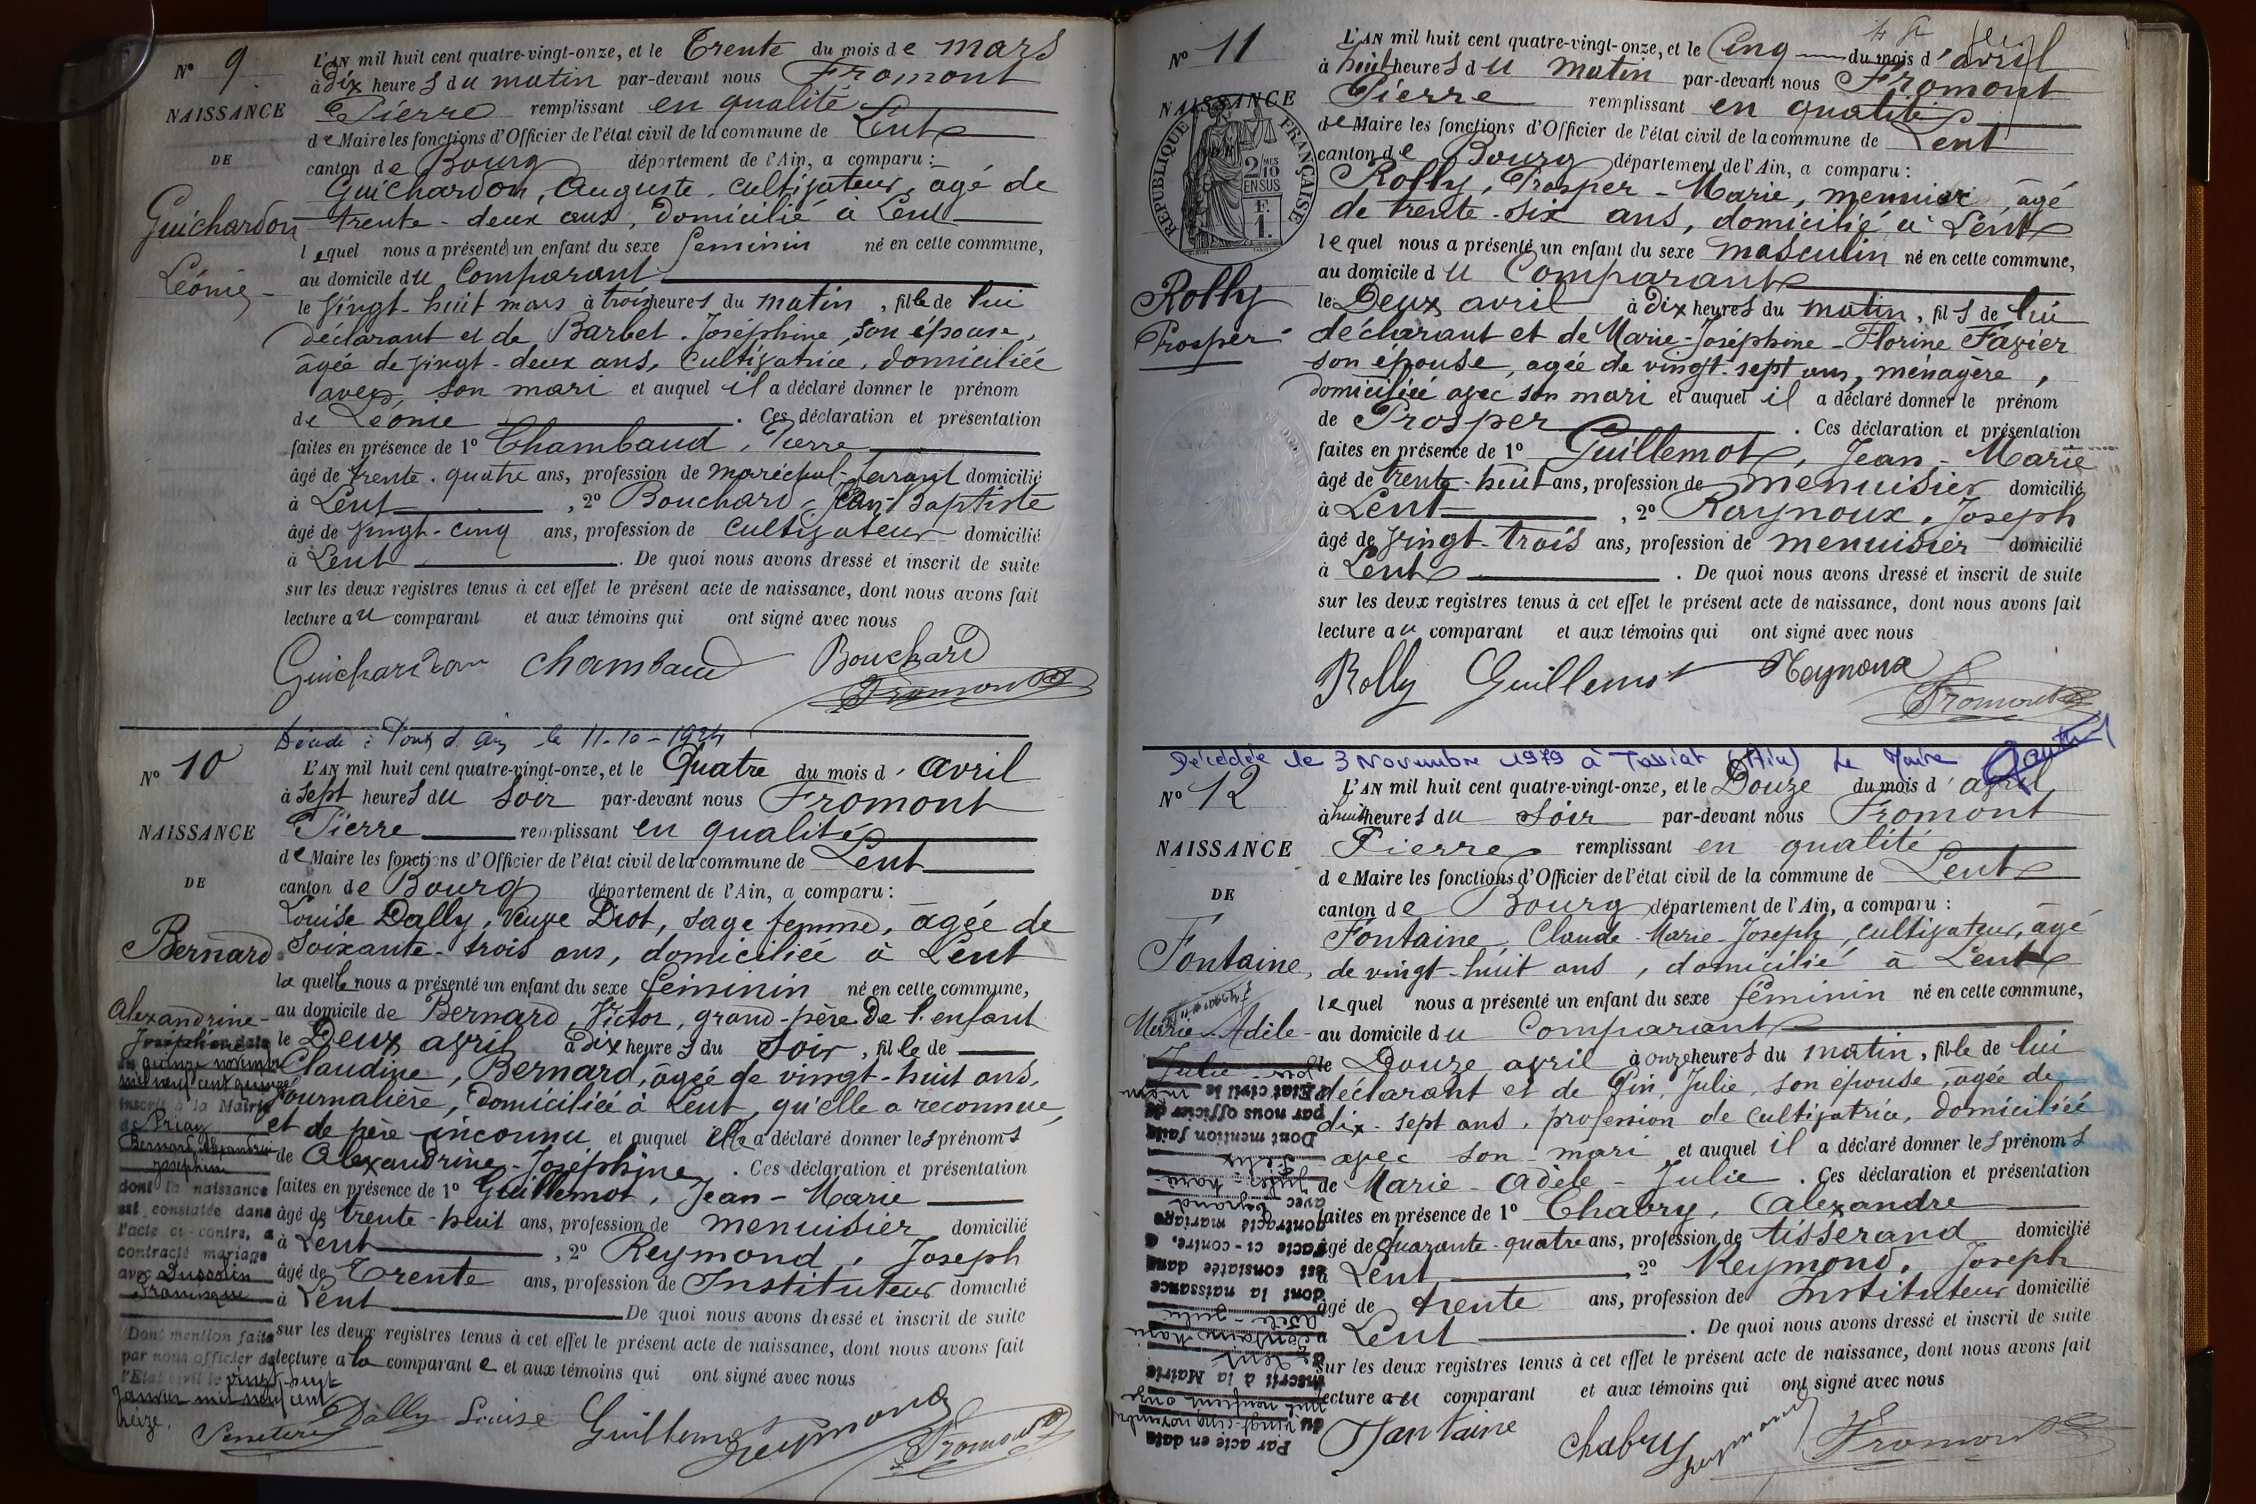 N° 9
NAISSANCE
DE
Guichardon
Léonie
L'AN mil huit cent quatre-vingt-onze, et le Trente du mois de mars
à dix heures du matin par-devant nous Fromont
Pierre remplissant en qualité
de Maire les fonctions d'Officier de l'état civil de la commune de Lent
canton de Bourg département de l'Ain, a comparu :
Guichardon, Auguste, cultivateur, âgé de
trente-deux ans, domicilié à Lent
lequel nous a présenté un enfant du sexe féminin né en cette commune,
au domicile du Comparant
le vingt-huit mars à trois heures du matin, fille de lui
déclarant et de Barbet Joséphine, son épouse,
âgée de vingt-deux ans, cultivatrice, domiciliée
avec son mari et auquel il a déclaré donner le prénom
de Léonie. Ces déclaration et présentation
faites en présence de 1° Chambaud, Pierre
âgé de trente-quatre ans, profession de maréchal-ferrant domicilié
à Lent, 2° Bouchard, Jean-Baptiste
âgé de vingt-cinq ans, profession de cultivateur domicilié
à Lent. De quoi nous avons dressé et inscrit de suite
sur les deux registres tenus à cet effet le présent acte de naissance, dont nous avons fait
lecture au comparant et aux témoins qui ont signé avec nous
Guichardon Chambaud Bouchard
Fromont
le 11-10-1924
N° 10
NAISSANCE
DE
Bernard
Alexandrine-
Joséphine
quinze novembre
mil neuf cent quinze
inscrit à la Mairie
de Priay
Bernard Alexandrine
Joséphine
dont la naissance
est constatée dans
l'acte ci-contre, a
contracté mariage
avec
Dont mention faite
par nous officier de
l'Etat civil le vingt-huit
Janvier mil neuf cent
seize.
L'AN mil huit cent quatre-vingt-onze, et le Quatre du mois d'avril
à sept heures du soir par-devant nous Fromont
Pierre remplissant en qualité
de Maire les fonctions d'Officier de l'état civil de la commune de Lent
canton de Bourg département de l'Ain, a comparu :
Louise Dally, veuve Diot, sage femme, âgée de
soixante-trois ans, domiciliée à Lent
laquelle nous a présenté un enfant du sexe féminin né en cette commune,
au domicile de Bernard, Victor, grand-père de l'enfant
le Deux avril à dix heures du soir, fille de
Claudine, Bernard, âgée de vingt-huit ans,
journalière, domiciliée à Lent, qu'elle a reconnue,
et de père inconnu et auquel elle a déclaré donner les prénoms
de Alexandrine-Joséphine. Ces déclaration et présentation
faites en présence de 1° Guillemot, Jean-Marie
âgé de trente-huit ans, profession de menuisier domicilié
à Lent, 2° Reymond, Joseph
âgé de Trente ans, profession de Instituteur domicilié
à Lent. De quoi nous avons dressé et inscrit de suite
sur les deux registres tenus à cet effet le présent acte de naissance, dont nous avons fait
lecture à la comparante et aux témoins qui ont signé avec nous
Dally Louise Guillemot Reymond
Fromont
N° 11
NAISSANCE
RÉPUBLIQUE FRANÇAISE
2/10 EN SUS
F. 1.
Rolly
Prosper
L'AN mil huit cent quatre-vingt-onze, et le Cinq du mois d'avril
à huit heures du matin par-devant nous Fromont
Pierre remplissant en qualité
de Maire les fonctions d'Officier de l'état civil de la commune de Lent
canton de Bourg département de l'Ain, a comparu :
Rolly, Prosper-Marie, âgé
de trente-six ans, domicilié à Lent
lequel nous a présenté un enfant du sexe masculin né en cette commune,
au domicile du Comparant
le Deux avril à dix heures du matin, fils de lui
déclarant et de Marie-Joséphine-Florine Favier
son épouse, âgée de vingt-sept ans, ménagère,
domiciliée avec son mari et auquel il a déclaré donner le prénom
de Prosper. Ces déclaration et présentation
faites en présence de 1° Guillemot, Jean-Marie
âgé de trente-huit ans, profession de menuisier domicilié
à Lent, 2° Raynoux, Joseph
âgé de vingt-trois ans, profession de menuisier domicilié
à Lent. De quoi nous avons dressé et inscrit de suite
sur les deux registres tenus à cet effet le présent acte de naissance, dont nous avons fait
lecture au comparant et aux témoins qui ont signé avec nous
Rolly Guillemot Reynoux
Fromont
Décédée le 3 Novembre 1979 à Tossiat (Ain) Le Maire
N° 12
NAISSANCE
DE
Fontaine,
Marie-Adèle-
Julie
L'AN mil huit cent quatre-vingt-onze, et le Douze du mois d'avril
à huit heures du soir par-devant nous Fromont
Pierre remplissant en qualité
de Maire les fonctions d'Officier de l'état civil de la commune de Lent
canton de Bourg département de l'Ain, a comparu :
Fontaine, Claude-Marie-Joseph, cultivateur, âgé
de vingt-huit ans, domicilié à Lent
lequel nous a présenté un enfant du sexe féminin né en cette commune,
au domicile du Comparant
le Douze avril à onze heures du matin, fille de lui
déclarant et de Pin, Julie, son épouse, âgée de
dix-sept ans, profession de cultivatrice, domiciliée
avec son mari et auquel il a déclaré donner les prénoms
de Marie-Adèle-Julie. Ces déclaration et présentation
faites en présence de 1° Chabry, Alexandre
âgé de quarante-quatre ans, profession de tisserand domicilié
à Lent 2° Reymond, Joseph
âgé de trente ans, profession de Instituteur domicilié
Lent. De quoi nous avons dressé et inscrit de suite
sur les deux registres tenus à cet effet le présent acte de naissance, dont nous avons fait
lecture au comparant et aux témoins qui ont signé avec nous
Fontaine Chabry Reymond Fromont
Par acte en date
du vingt-cinq novembre
inscrit à la Mairie
de Lent
dont la naissance
est constatée dans
l'acte ci-contre, a
contracté mariage
avec
Dont mention faite
par nous officier de
l'Etat civil le